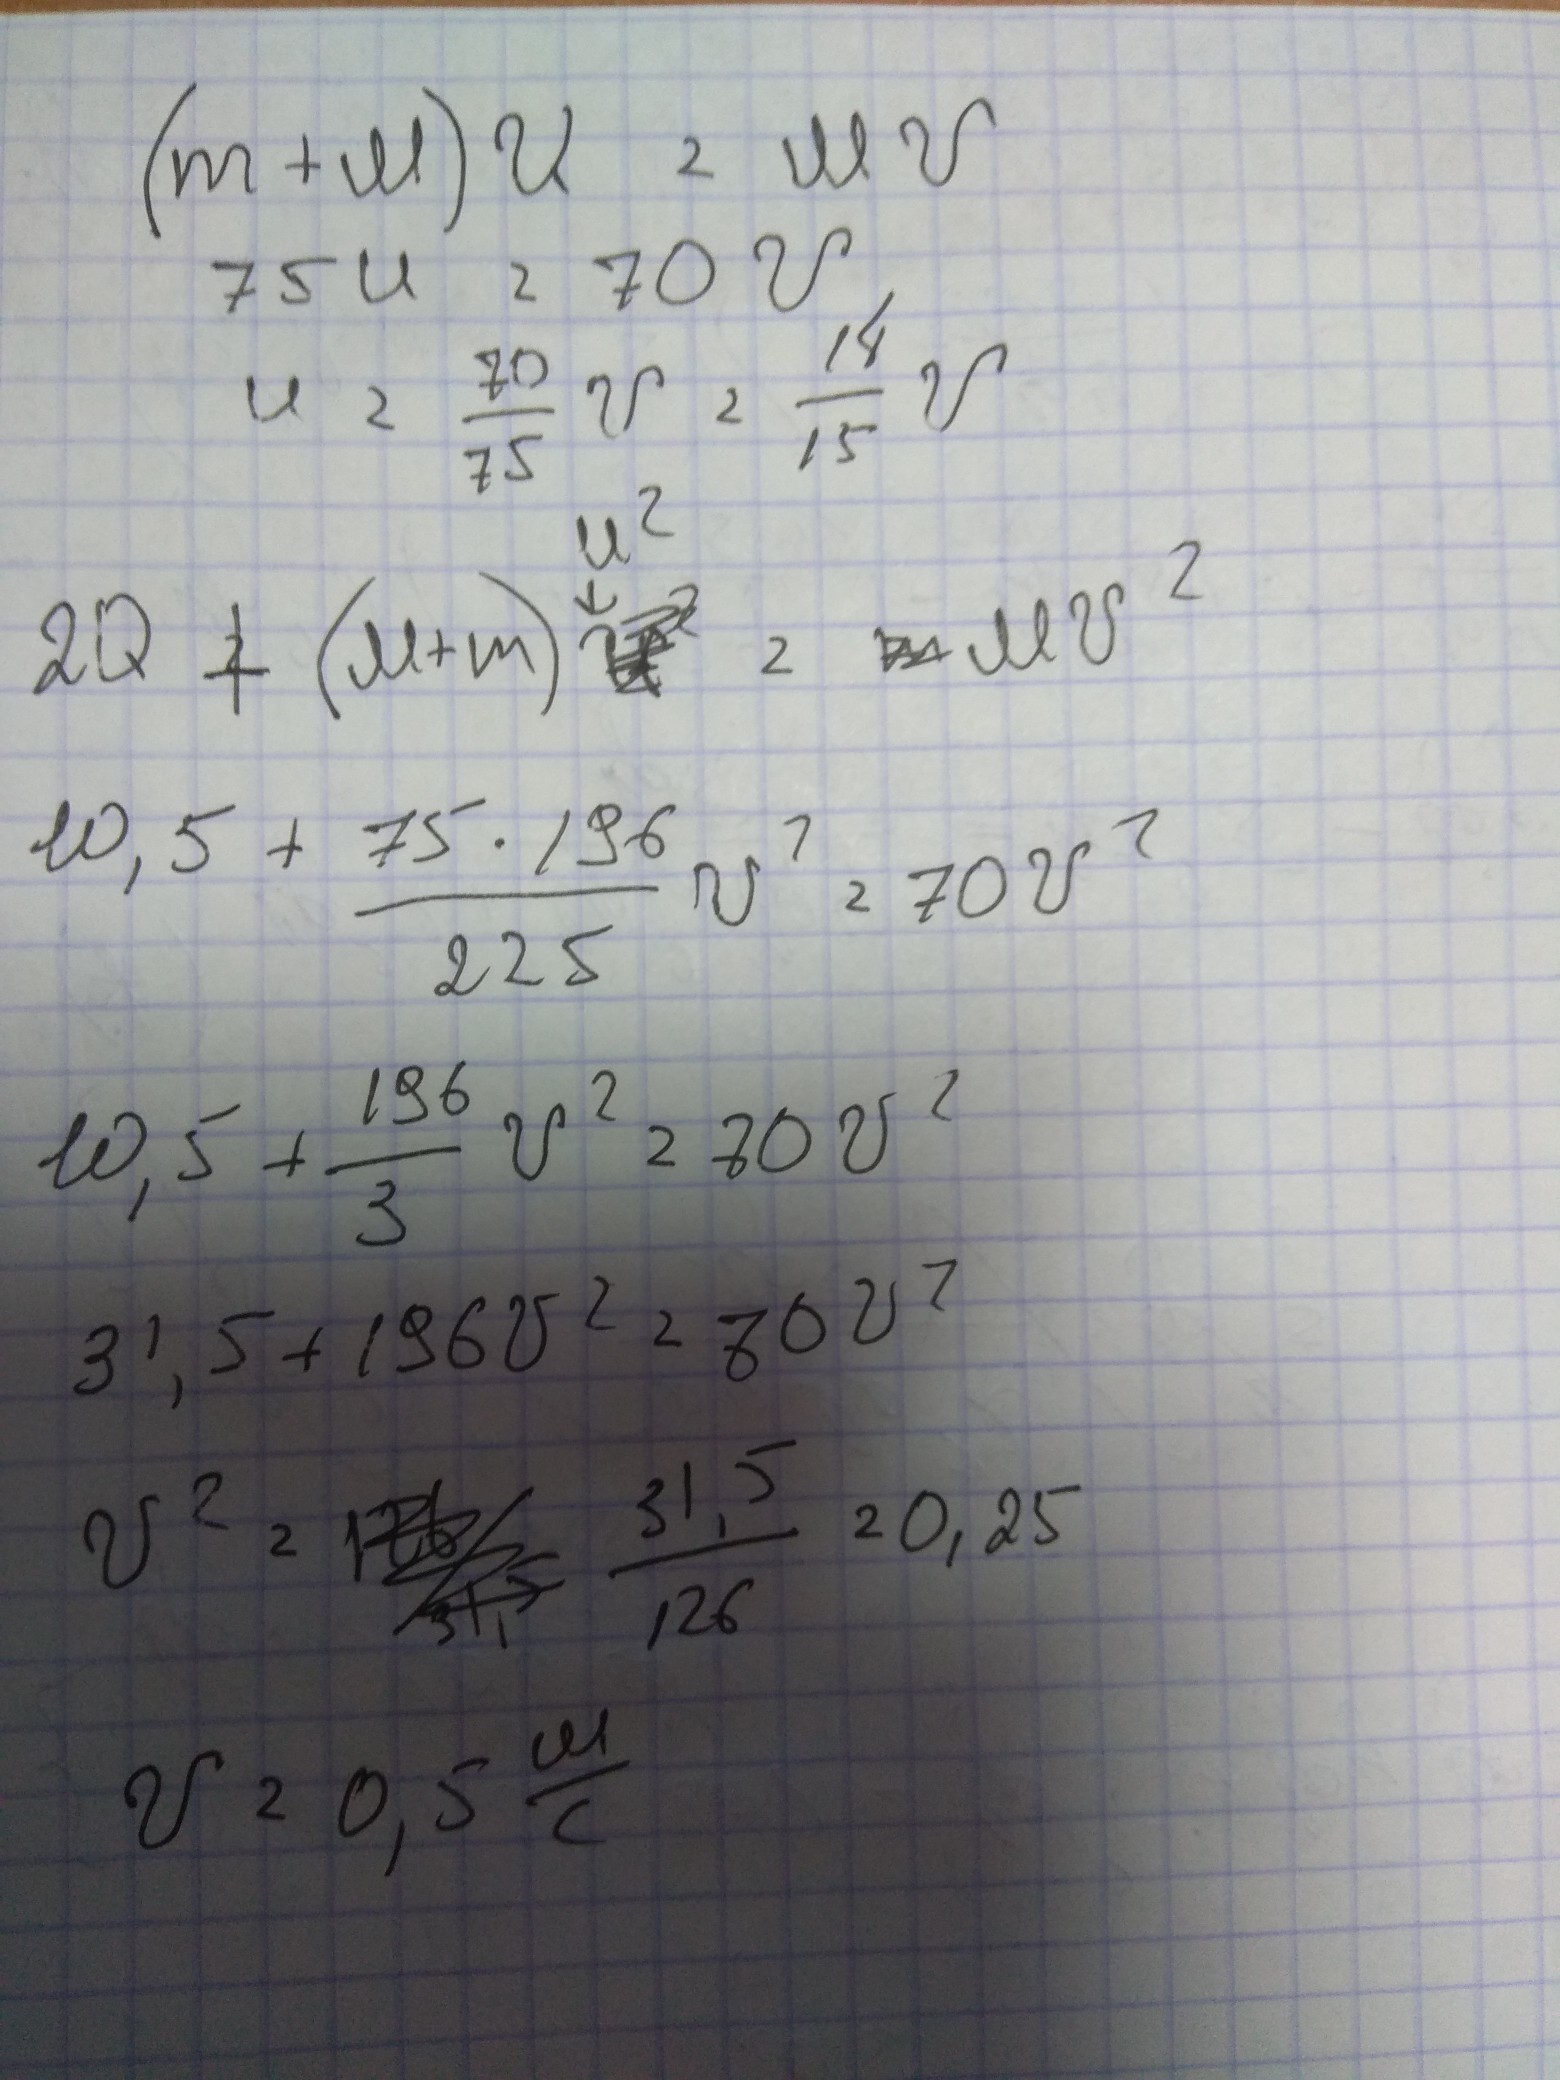 (m+M)u = Mv
75u = 70v
u = 70/75 v = 14/15 v
u²
↓
2Q + (M+m) = Mv²
10,5 + 75·196/225 v² = 70v²
10,5 + 196/3 v² = 70v²
31,5 + 196v² = 70v²
v² = 31,5/126 = 0,25
v = 0,5 м/с